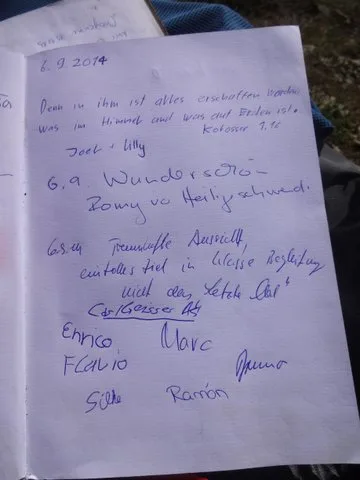 6.9.2014
Denn in ihm ist alles erschaffen worden
was im Himmel und was auf Erden ist.
Kolosser 1,16
Joel + Lilly
6.9. Wunderschön
Romy vo Heiligschwendi
6.9.14 Traumhafte Aussicht,
ein tolles Ziel in klasse Begleitung
nicht das letzte Mal!
Enrico Marc
FLAVIO Bruno
Silke Ramón